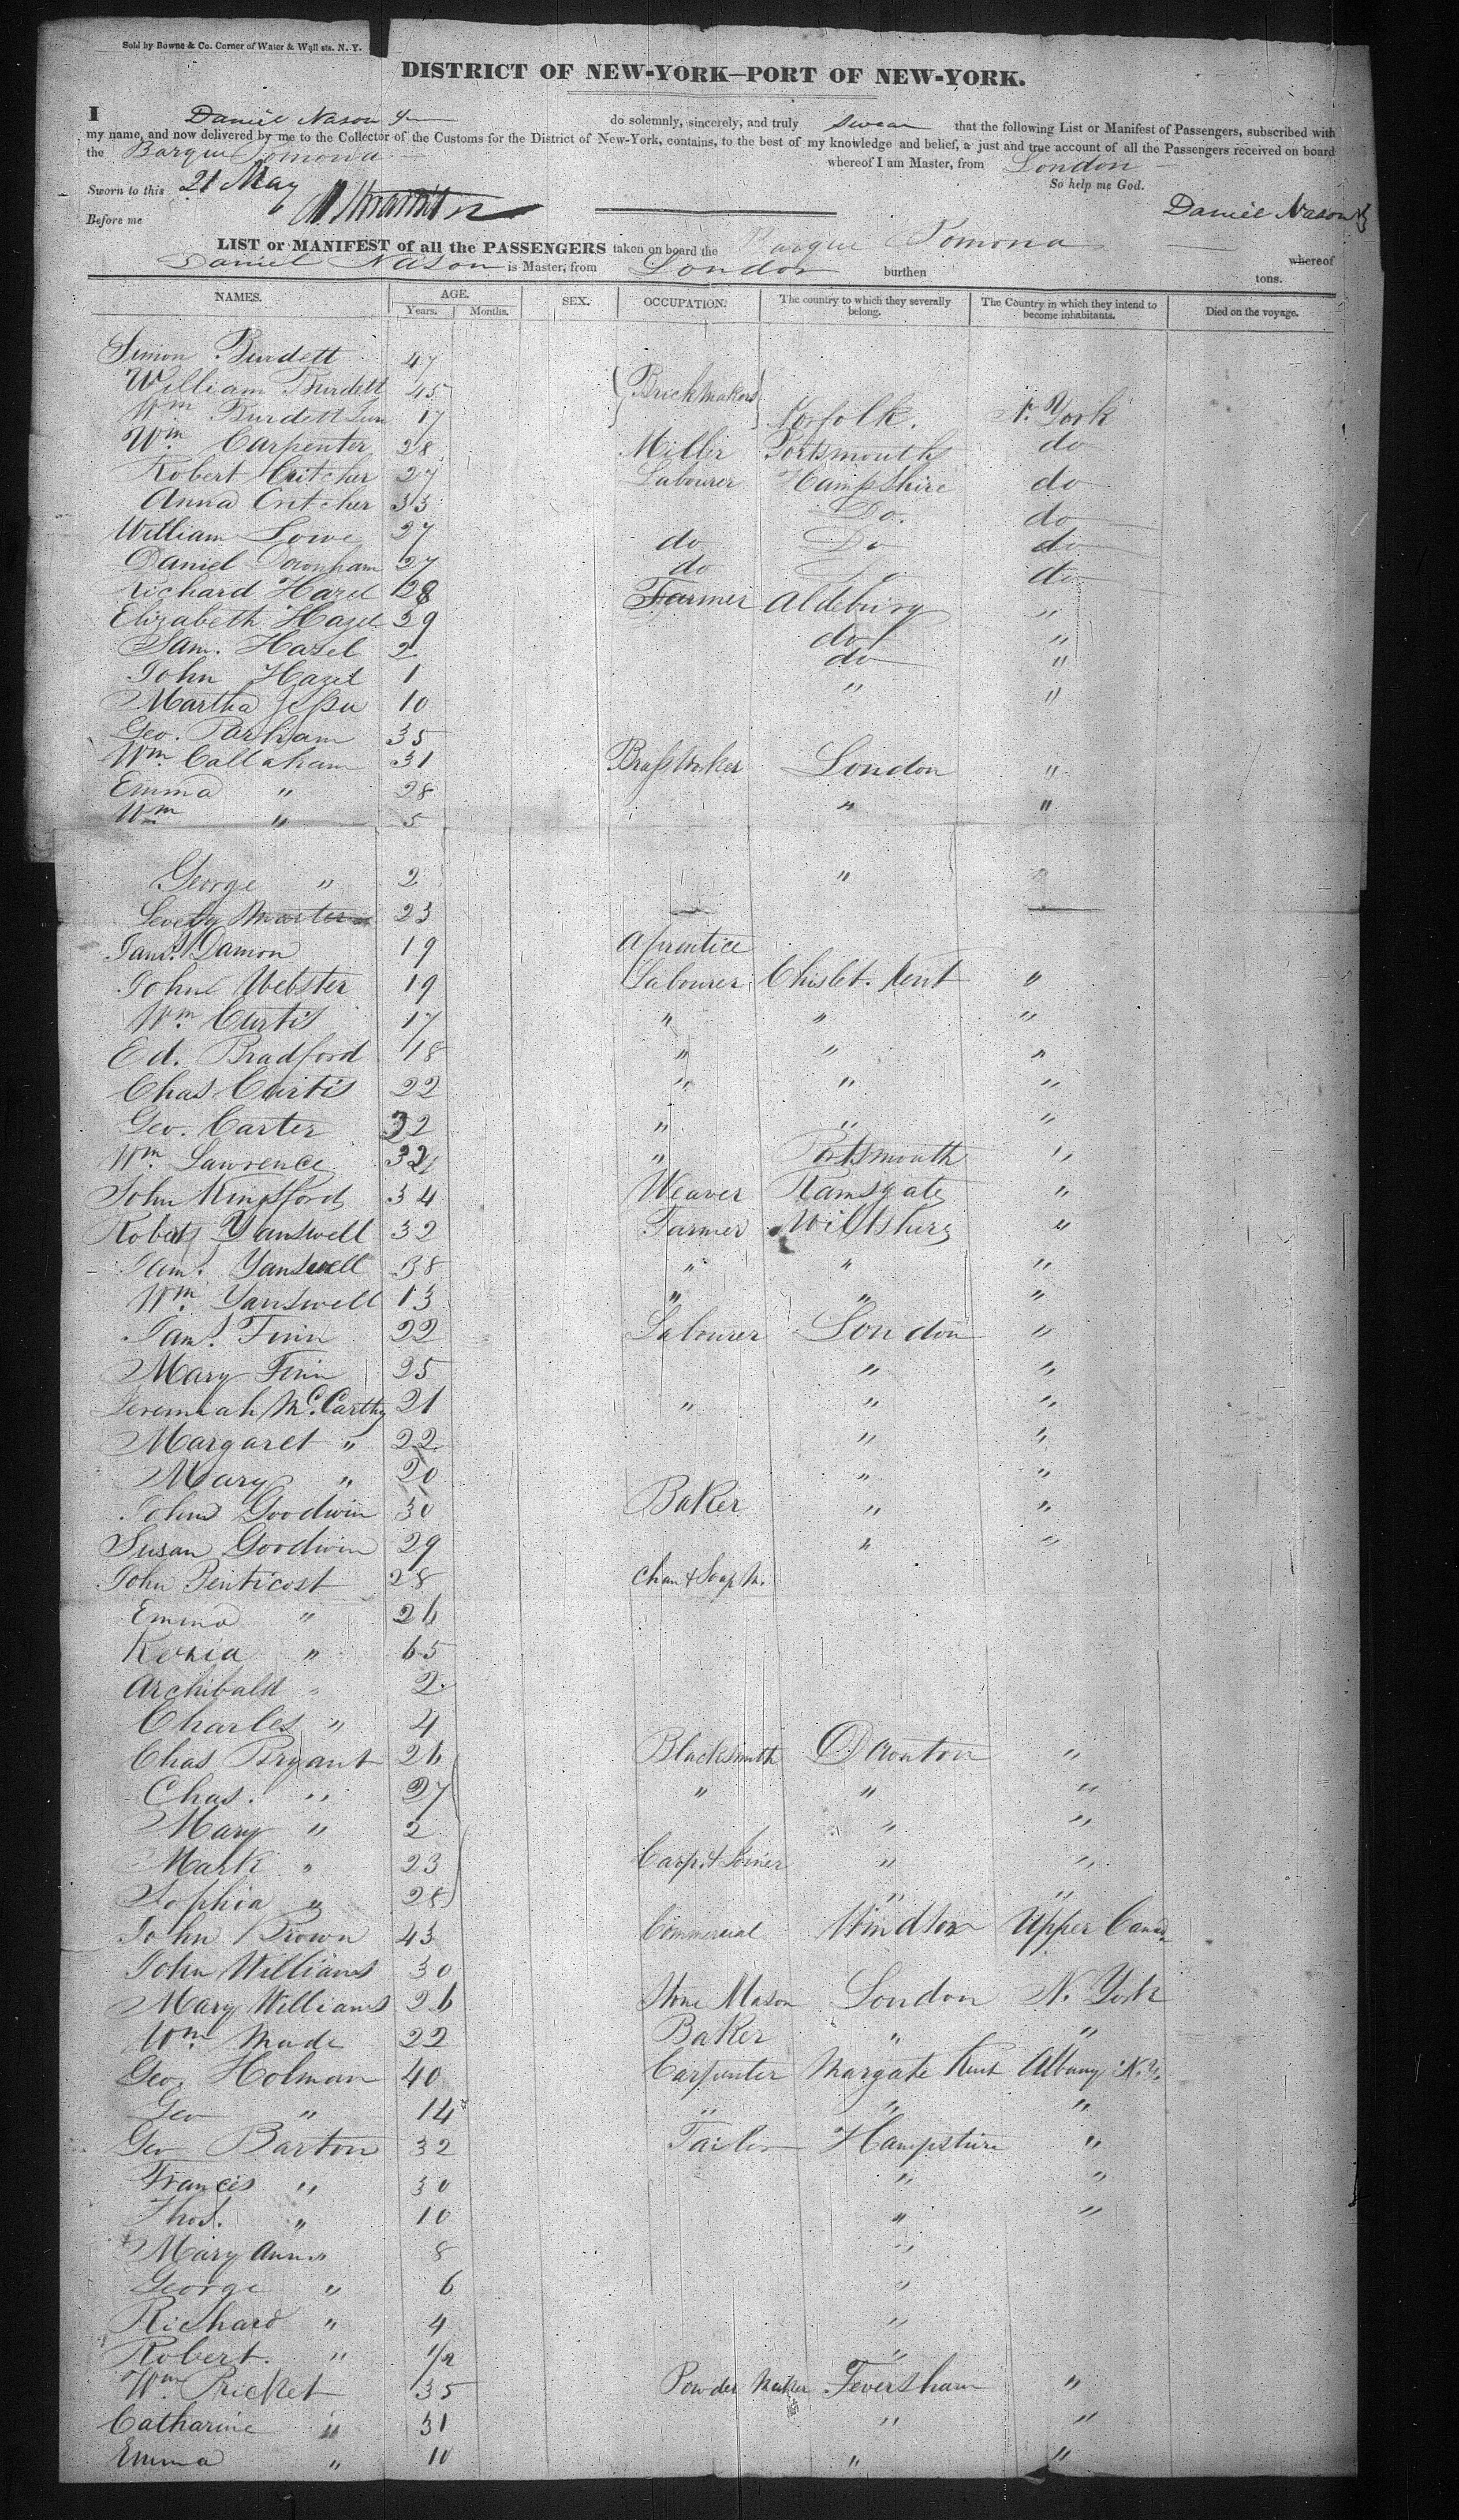 Sold by Bowne & Co. Corner of Water & Wall sts. N. Y.
DISTRICT OF NEW-YORK—PORT OF NEW-YORK.
I Daniel Nason Jr do solemnly, sincerely, and truly swear that the following List or Manifest of Passengers, subscribed with
my name, and now delivered by me to the Collector of the Customs for the District of New-York, contains, to the best of my knowledge and belief, a just and true account of all the Passengers received on board
the Barque Pomona whereof I am Master, from London
Sworn to this 21 May So help me God.
Before me Daniel Nason Jr
LIST or MANIFEST of all the PASSENGERS taken on board the Barque Pomona whereof
Daniel Nason is Master, from London burthen tons.
NAMES. AGE. Years. Months. SEX. OCCUPATION. The country to which they severally belong. The Country in which they intend to become inhabitants. Died on the voyage.
Simon Burdett 47
William Burdett 45 Brickmakers
Wm Burdett Jun 17 Norfolk. N. York
Wm Carpenter 28 Miller Portsmouth do
Robert Critcher 27 Labourer Hampshire do
Anna Critcher 33 Do. do
William Lowe 27 do Do do
Daniel Downham 27 do Do do
Richard Hazel 28 Farmer Aldebury "
Elizabeth Hazel 29 do "
Sam. Hazel 2 do "
John Hazel 1 " "
Martha 10
Geo. Parham 35
Wm Callaham 31 Brass Worker London "
Emma " 28 " "
Wm " 5
George " 2 "
23
Jams. Damon 19 Aprentice
John Webster 19 Labourer Chislet. Kent "
Wm Curtis 17 " " "
Ed. Bradford 18 " " "
Chas Curtis 22 " " "
Geo. Carter 32 " " "
Wm. Lawrence 32 " Portsmouth "
John Kingsford 34 Weaver Ramsgate "
Robert Yanswell 32 Farmer Wiltshire "
Jams. Yanswell 38 " " "
Wm. Yanswell 13 " " "
Jams. Finn 22 Labourer London "
Mary Finn 25 " "
Jeremiah McCarthy 21 " " "
Margaret " 22 " "
Mary " 20 " "
John Goodwin 30 Baker " "
Susan Goodwin 29 " "
John Penticost 28 Chan & Soap M.
Emma " 26
Kezia " 65
Archibald " 2
Charles " 4
Chas Bryant 26 Blacksmith Downton "
Chas. " 27 " " "
Mary " 2 " "
Mark " 23 Carp. & Joiner " "
Sophia " 28 " "
John Brown 43 Commercial Windsor Upper Canada
John Williams 30
Mary Williams 26 Stone Mason London N. York
Wm Made 22 Baker " "
Geo. Holman 40 Carpenter Margate Kent Albany N.Y.
Geo " 14 " " "
Geo Barton 32 Tailor Hampshire "
Francis " 30 " "
Thos. " 10 " "
Mary Ann " 8 "
George " 6 "
Richard " 4 "
Robert. " 1/2 "
Wm. Pricket 35 Powder Maker Feversham "
Catharine " 31 " "
Emma " 10 " "